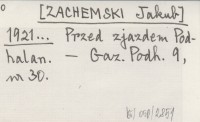 [ZACHEMSKI Jakub]
1921... Przed zjazdem Pod-
halan. — Gaz. Podh. 9,
nr 30.